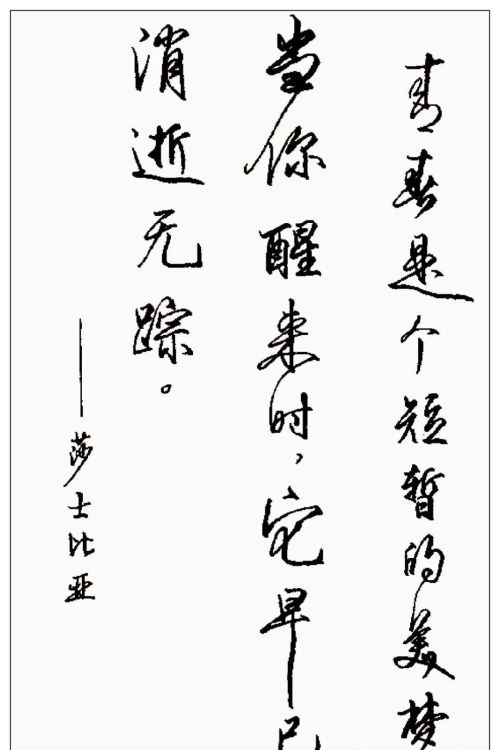 青春是个短暂的美梦
当你醒来时，它早已
消逝无踪。
——莎士比亚